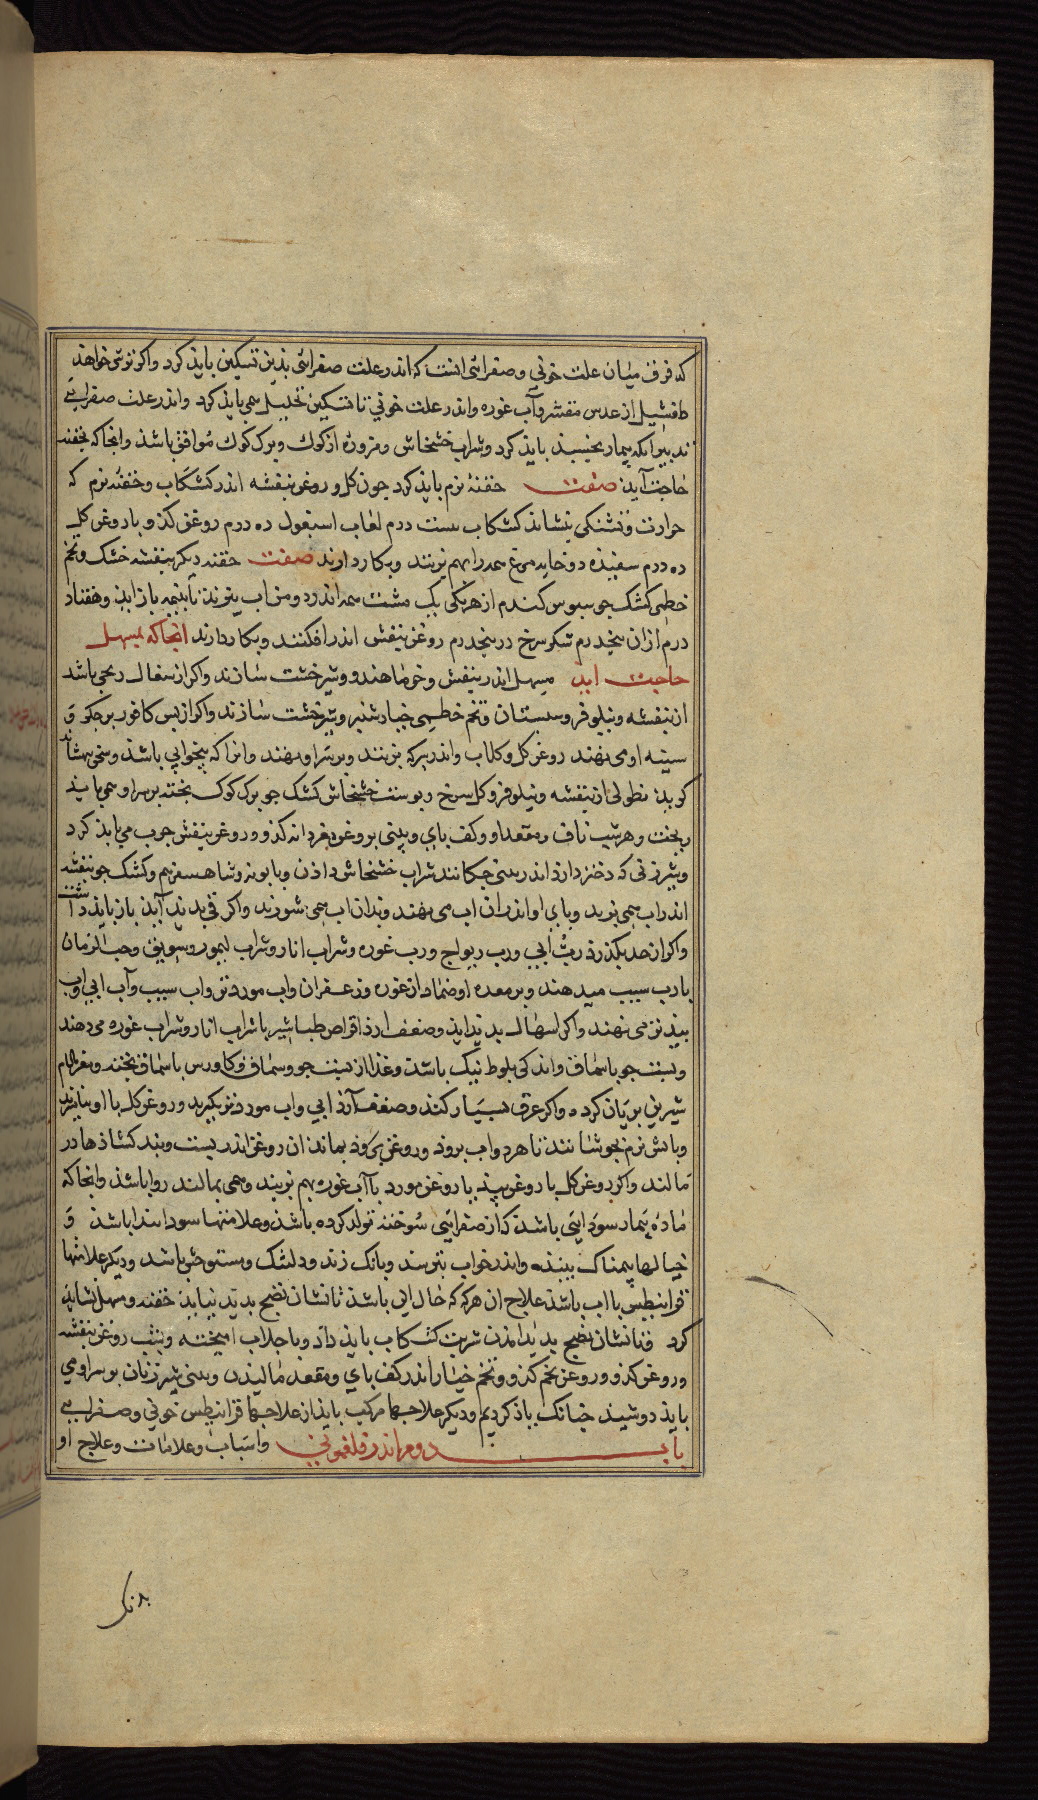 که فرق میان علت خونی و صفرائی انست که اندر علت صفرائی بذین تسکین بایذ کرد واکر ترشی خواهذ
طفشیل از عدس مقشر وآب غوره واندر علت خونی با تسکین تحلیل می بایذ کرد واندر علت صفرایی
تدبیر آنکه بیمار بخسبذ بایذ کرد وشراب خشخاش ومزوره از کوک وبرک کوک موافق باشذ وانجا که بحقنه
حاجت آیذ صفت حقنهٔ نرم بایذ کرد چون کل وروغن بنفشه اندر کشکاب وحقنه نرم که
حرارت وتشنکی بنشاند کشکاب بیست درم لعاب اسبغول ده درم روغن کذو با روغن کل
ده درم سفیذه دو خایه مرغ همه را بهم بزنند وبکار دارند صفت حقنه دیکر بنفشه خشک وتخم
خطمی کشک جو سبوس کندم از هر یکی یک مشت همه اندر دو من اب بپزند تا بنیمه باز ایذ وهفتاد
درم ازان پنجدرم شکر سرخ در پنجدرم روغن بنفش اندر افکنند وبکار دارند انجا که بمسهل
حاجت ایذ مسهل اندر بنفش وخرما هندو وشیر خشت سازند واکر از سفال رنجی باشد
از بنفشه ونیلوفر وسبستان وتخم خطمی خیار شنبر وشیرخشت سازند واکر از پس کافور بر جکر و
سینه او می نهند روغن کل وکلاب واندر سرکه بزنند وبر سر او نهند وانرا که بیخوابی باشذ وسخن پریشان
کویذ نطولی از بنفشه ونیلوفر وکل سرخ وپوست خشخاش کشک جو برک کوک پخته بر سر او می بایذ
ریخت وهر شب ناف ومقعد او وکف پای وبینی بروغن مغز دانه کذو وروغن بنفش جرب می بایذ کرد
وشیر زنی که دختر دارذ اندر بینی چکانند شراب خشخاش دادن وبابونه وشاهسفرم وکشک جو بنفشه
اندر اب می بزند وپای او اندران اب می نهند وبدان اب می شورند واکر قی بدیذ آیذ باز بایذ داشت
واکر از حد بکذرد ربّ ابی ورب ریواج ورب غوره وشراب انار وشراب لیمو وسویق وحب الرمان
با رب سیب میدهند وبر معده او ضماد از غوره وزعفران واب مورد تر واب سیب وآب ابی واب
بیذ تر می نهند واکر اسهال بدیذ ایذ وضعف ارذ اقراص طباشیر با شراب انار وشراب غوره می دهند
وپست جو با سماق واندکی بلوط نیک باشذ وغذا از پست جو وسماق وکاورس با سماق پخته ومغز بادام
شیرین بریان کرده واکر عرق بسیار کنذ وضعف آرذ ابی واب مورد تر بکیرند وروغن کل با او بیامیزند
وباتش نرم بجوشانند تا هر دو اب برود وروغن بی وذ بماند ان روغن اندر پشت وبند کشاذها در
مالند واکر روغن کل با روغن بیذ یا روغن مورد با آب غوره بهم بزنند وهمی بمالند روا باشذ وانجا که
مادّهٔ بیمار سودایی باشد که از صفرایی سوخته تولد کرده باشذ وعلامتها سودا پیدا باشذ و
خیالها بیمناک بیند واندر خواب بترسد وبانک زند ودلتنک ومستوحش باشد ودیکر علامتها
قرانیطس با اب باشذ علاج ان هرکه که خال ابی باشذ تا نشان نضج بدید نیایذ حقنه ومسهل نشایذ
کرد فتا نشان نضج بدیذ امدن شربت کشکاب بایذ داد وبا جلاب امیخته وبشب روغن بنفشه
وروغن کذو وروغن تخم کذو وتخم خیار اندر کف پای ومقعد مالیذن وبینی شیر زنان بر سر او می
بایذ دوشیذ چنانک یاذ کردیم ودیکر علاجها مرکب بایذ از علاجها قرانیطس خونی وصفرایی
باب دوم اندر فلغمونی واسباب وعلامات وعلاج او
بذانک